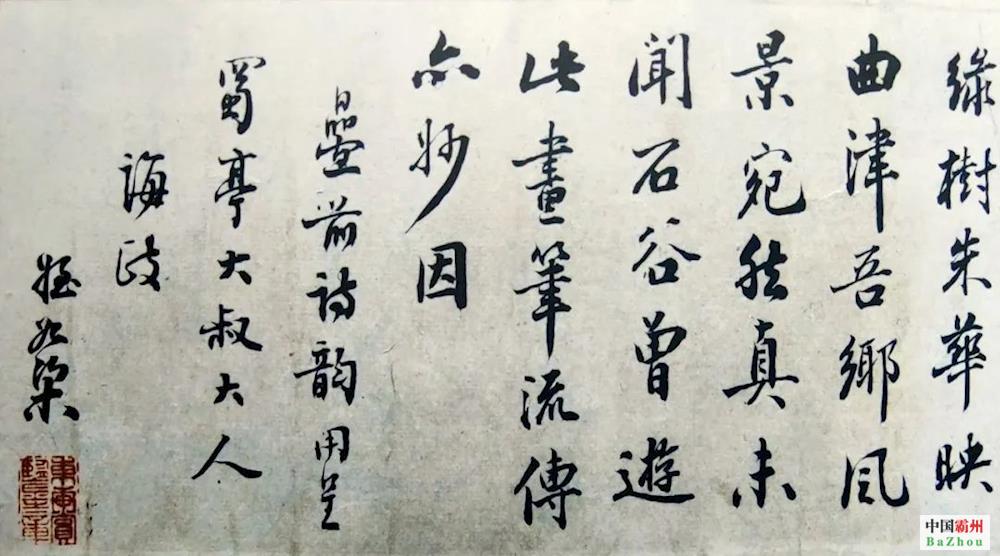 綠樹朱華映
曲津吾鄉風
景宛然真未
聞石谷曾遊
此畫筆流傳
亦妙因
疊前詩韻用呈
蜀亭大叔大人
誨政
姪如棠
中国霸州
BaZhou